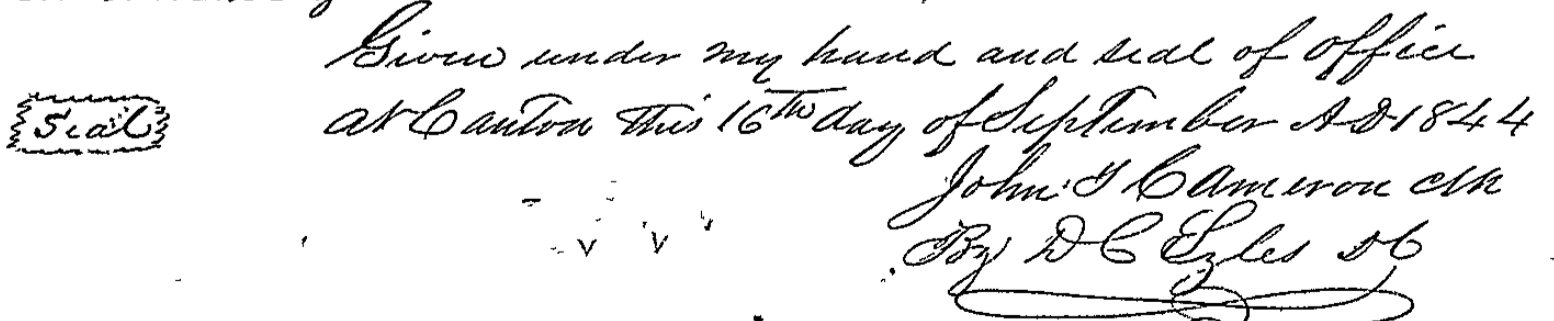 Given under my hand and seal of office
Seal
at Canton this 16th day of September AD 1844
John T Cameron clk
By D C Sykes DC